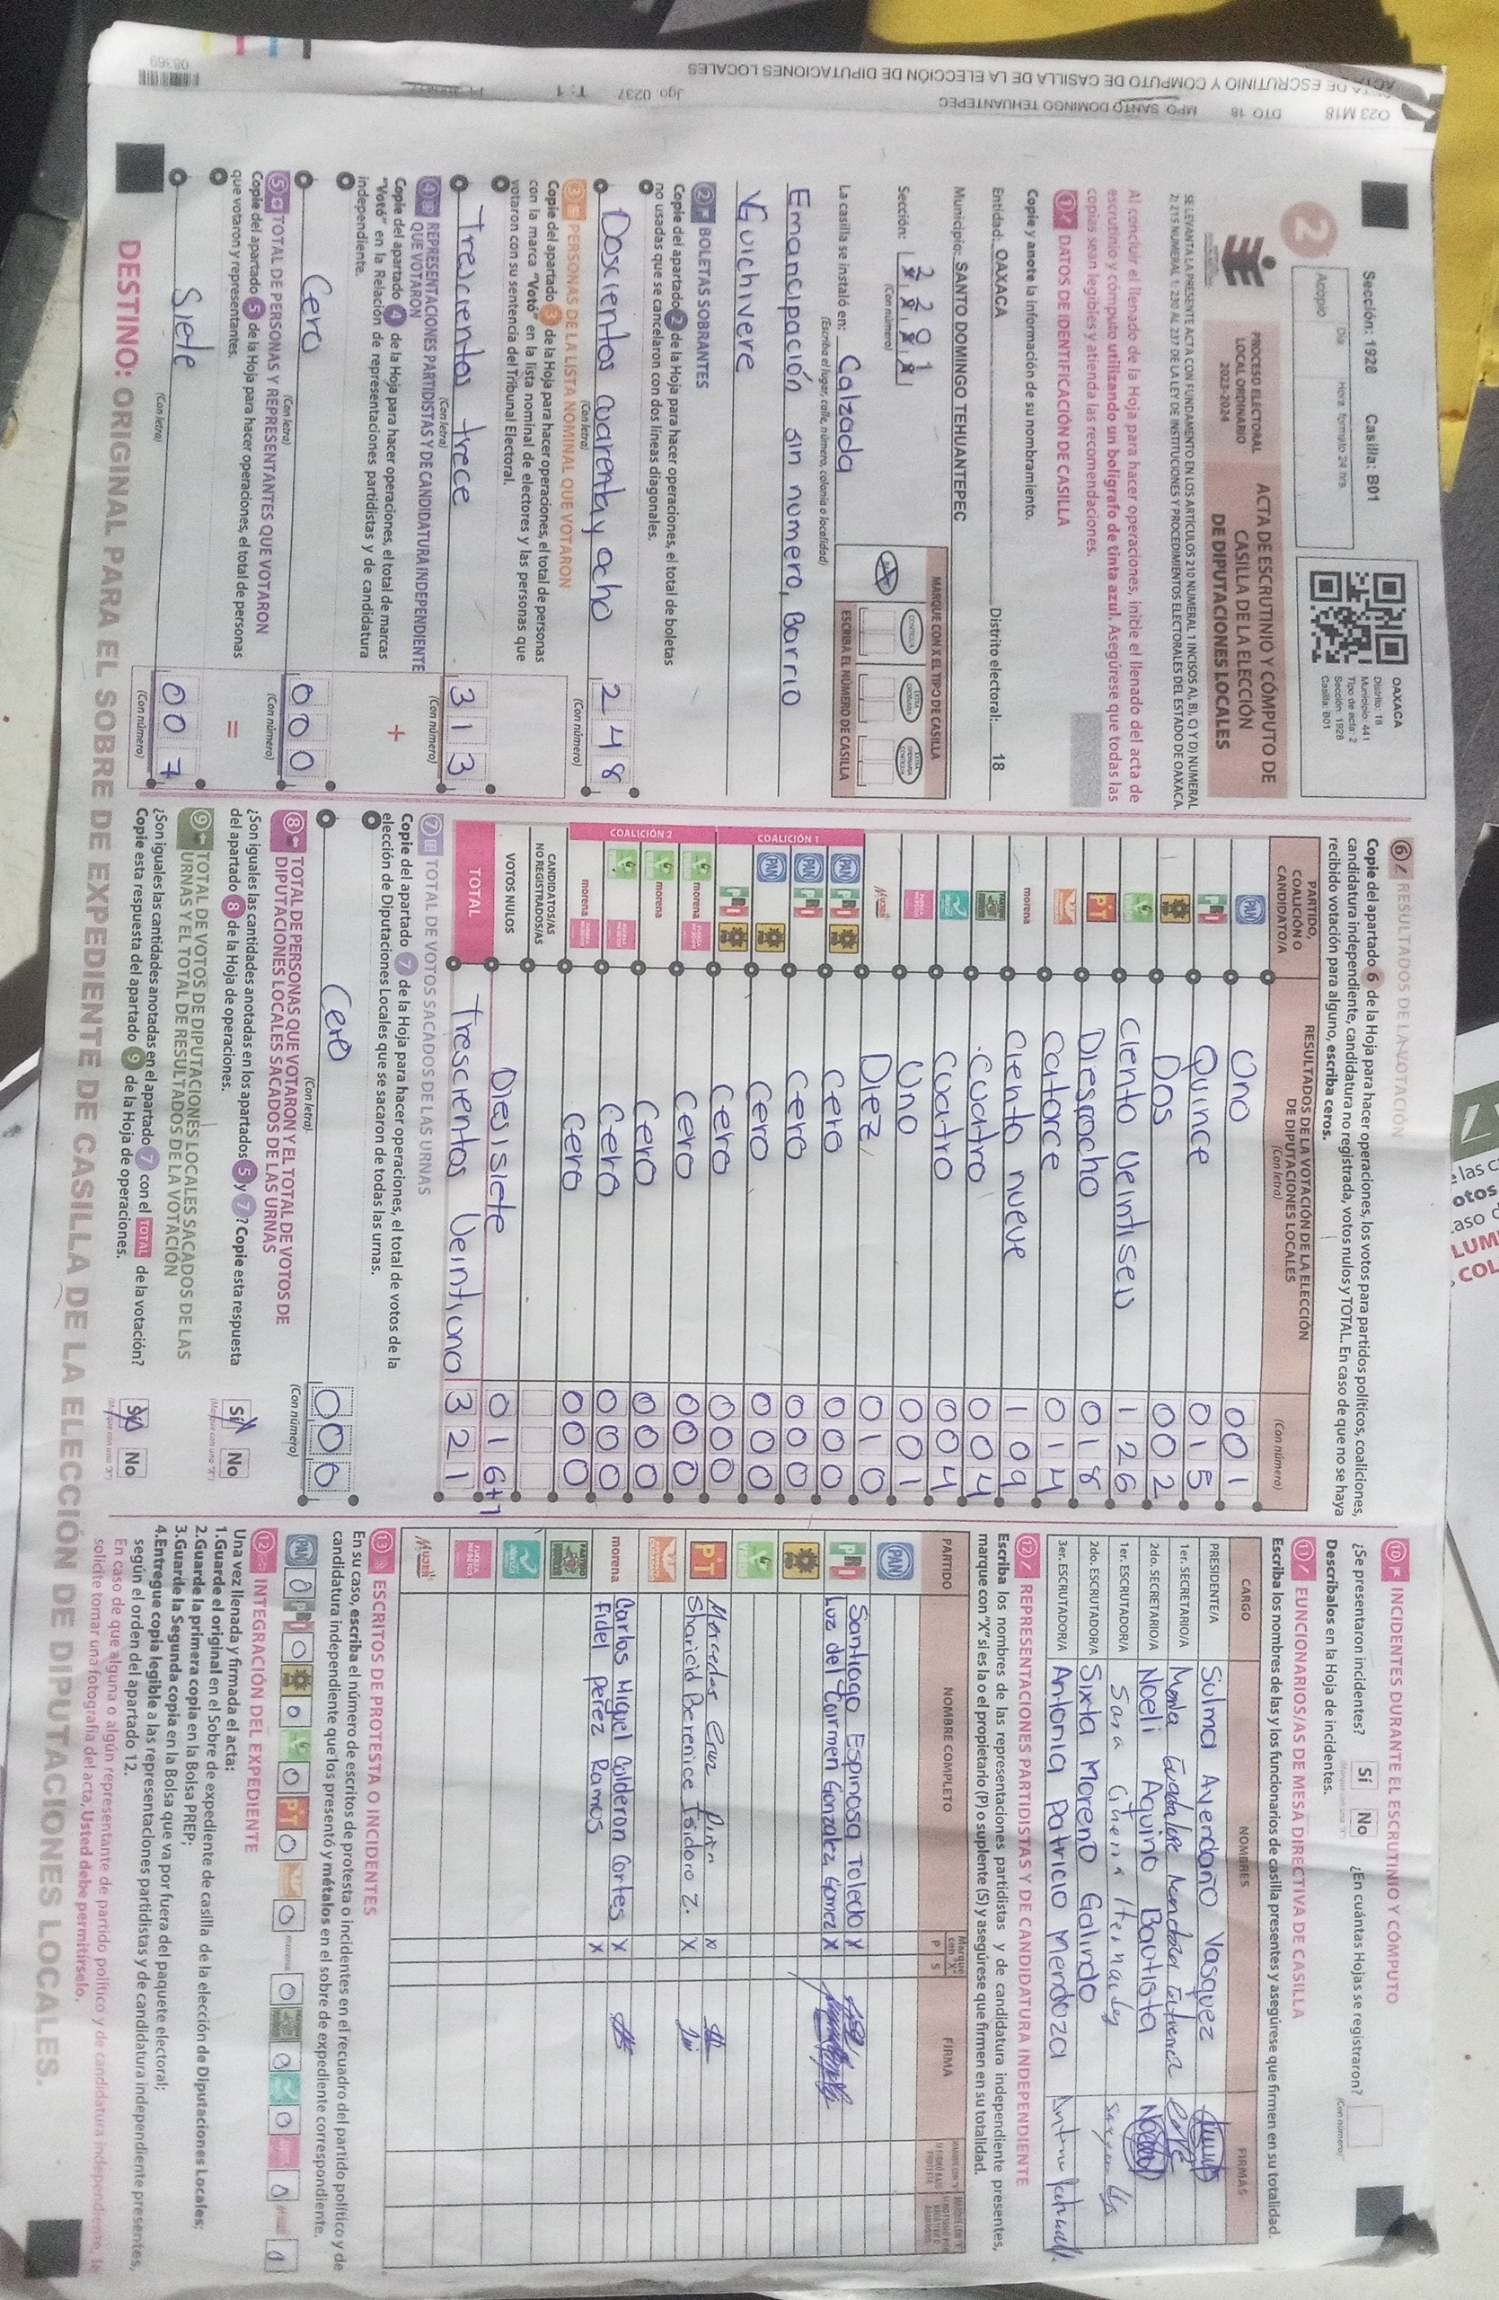 O23 M18 DTO 18 MPO SANTO DOMINGO TEHUANTEPEC
ACTA DE ESCRUTINIO Y CÓMPUTO DE CASILLA DE LA ELECCIÓN DE DIPUTACIONES LOCALES
Jgo 0237 T: 1
08369
Sección: 1928 Casilla: B01
OAXACA
Distrito: 18
Municipio: 441
Tipo de acta: 2
Sección: 1928
Casilla: B01
2
Acopio
Día
Hora formato 24 hrs
PROCESO ELECTORAL
LOCAL ORDINARIO
2023-2024
ACTA DE ESCRUTINIO Y CÓMPUTO DE
CASILLA DE LA ELECCIÓN
DE DIPUTACIONES LOCALES
SE LEVANTA LA PRESENTE ACTA CON FUNDAMENTO EN LOS ARTÍCULOS 210 NUMERAL 1 INCISOS A), B), C) Y D) NUMERAL
2; 215 NUMERAL 1; 230 AL 237 DE LA LEY DE INSTITUCIONES Y PROCEDIMIENTOS ELECTORALES DEL ESTADO DE OAXACA.
Al concluir el llenado de la Hoja para hacer operaciones, inicie el llenado del acta de
escrutinio y cómputo utilizando un bolígrafo de tinta azul. Asegúrese que todas las
copias sean legibles y atienda las recomendaciones.
1 DATOS DE IDENTIFICACIÓN DE CASILLA
Copie y anote la información de su nombramiento.
Entidad: OAXACA Distrito electoral: 18
Municipio: SANTO DOMINGO TEHUANTEPEC
Sección: 2201
(Con número)
MARQUE CON X EL TIPO DE CASILLA
ESCRIBA EL NÚMERO DE CASILLA
La casilla se instaló en: Calzada
(Escriba el lugar, calle, número, colonia o localidad)
Emancipación sin numero, Barrio
Guichivere
2 BOLETAS SOBRANTES
Copie del apartado 2 de la Hoja para hacer operaciones, el total de boletas
no usadas que se cancelaron con dos líneas diagonales.
Doscientos cuarenta y ocho 248
(Con letra) (Con número)
3 PERSONAS DE LA LISTA NOMINAL QUE VOTARON
Copie del apartado 3 de la Hoja para hacer operaciones, el total de personas
con la marca "Votó" en la lista nominal de electores y las personas que
votaron con su sentencia del Tribunal Electoral.
Trescientos trece 313
(Con letra) (Con número)
4 REPRESENTACIONES PARTIDISTAS Y DE CANDIDATURA INDEPENDIENTE
QUE VOTARON
Copie del apartado 4 de la Hoja para hacer operaciones, el total de marcas
"Votó" en la Relación de representaciones partidistas y de candidatura
independiente.
+
Cero 000
(Con letra) (Con número)
5 TOTAL DE PERSONAS Y REPRESENTANTES QUE VOTARON
Copie del apartado 5 de la Hoja para hacer operaciones, el total de personas
que votaron y representantes.
=
Siete 007
(Con letra) (Con número)
6 RESULTADOS DE LA VOTACIÓN
Copie del apartado 6 de la Hoja para hacer operaciones, los votos para partidos políticos, coaliciones,
candidatura independiente, candidatura no registrada, votos nulos y TOTAL. En caso de que no se haya
recibido votación para alguno, escriba ceros.
PARTIDO, COALICIÓN O CANDIDATO/A
RESULTADOS DE LA VOTACIÓN DE LA ELECCIÓN DE DIPUTACIONES LOCALES
(Con letra) (Con número)
PAN Uno 001
PRI Quince 015
Dos 002
Ciento Veintiseis 126
PT Diesiocho 018
Catorce 014
morena Ciento nueve 109
Cuatro 004
Cuatro 004
Uno 001
Diez 010
COALICIÓN 1
PAN PRI Cero 000
PAN PRI Cero 000
PAN Cero 000
PRI Cero 000
COALICIÓN 2
morena Cero 000
morena Cero 000
Cero 000
morena Cero 000
CANDIDATOS/AS
NO REGISTRADOS/AS
VOTOS NULOS Diesisiete 016+1
TOTAL Trescientos Veintiuno 321
7 TOTAL DE VOTOS SACADOS DE LAS URNAS
Copie del apartado 7 de la Hoja para hacer operaciones, el total de votos de la
elección de Diputaciones Locales que se sacaron de todas las urnas.
Cero 000
(Con letra) (Con número)
8 TOTAL DE PERSONAS QUE VOTARON Y EL TOTAL DE VOTOS DE
DIPUTACIONES LOCALES SACADOS DE LAS URNAS
¿Son iguales las cantidades anotadas en los apartados 5 y 7? Copie esta respuesta
del apartado 8 de la Hoja de operaciones.
Sí No
9 TOTAL DE VOTOS DE DIPUTACIONES LOCALES SACADOS DE LAS
URNAS Y EL TOTAL DE RESULTADOS DE LA VOTACIÓN
¿Son iguales las cantidades anotadas en el apartado 7 con el TOTAL de la votación?
Copie esta respuesta del apartado 9 de la Hoja de operaciones.
Sí No
10 INCIDENTES DURANTE EL ESCRUTINIO Y CÓMPUTO
¿Se presentaron incidentes? Sí No ¿En cuántas Hojas se registraron?
(Con número)
Descríbalos en la Hoja de incidentes.
11 FUNCIONARIOS/AS DE MESA DIRECTIVA DE CASILLA
Escriba los nombres de las y los funcionarios de casilla presentes y asegúrese que firmen en su totalidad.
CARGO NOMBRES FIRMAS
PRESIDENTE/A Sulma Avendaño Vasquez
1er. SECRETARIO/A
2do. SECRETARIO/A Noeli Aquino Bautista
1er. ESCRUTADOR/A Sara
2do. ESCRUTADOR/A Sixta Moreno Galindo
3er. ESCRUTADOR/A Antonia Patricio Mendoza
12 REPRESENTACIONES PARTIDISTAS Y DE CANDIDATURA INDEPENDIENTE
Escriba los nombres de las representaciones partidistas y de candidatura independiente presentes,
marque con "X" si es la o el propietario (P) o suplente (S) y asegúrese que firmen en su totalidad.
PARTIDO NOMBRE COMPLETO P S FIRMA
PAN
PRI Santiago Espinosa Toledo X
Luz del Carmen Gonzalez Gomez X
PT Mercedes Cruz X
Sharicid Berenice Isidoro Z. X
morena Carlos Miguel Calderon Cortes X
Fidel perez Ramos X
13 ESCRITOS DE PROTESTA O INCIDENTES
En su caso, escriba el número de escritos de protesta o incidentes en el recuadro del partido político y de
candidatura independiente que los presentó y métalos en el sobre de expediente correspondiente.
12 INTEGRACIÓN DEL EXPEDIENTE
Una vez llenada y firmada el acta:
1.Guarde el original en el Sobre de expediente de casilla de la elección de Diputaciones Locales;
2.Guarde la primera copia en la Bolsa PREP;
3.Guarde la Segunda copia en la Bolsa que va por fuera del paquete electoral;
4.Entregue copia legible a las representaciones partidistas y de candidatura independiente presentes,
según el orden del apartado 12.
En caso de que alguna o algún representante de partido político y de candidatura independiente, le
solicite tomar una fotografía del acta, Usted debe permitírselo.
DESTINO: ORIGINAL PARA EL SOBRE DE EXPEDIENTE DE CASILLA DE LA ELECCIÓN DE DIPUTACIONES LOCALES.